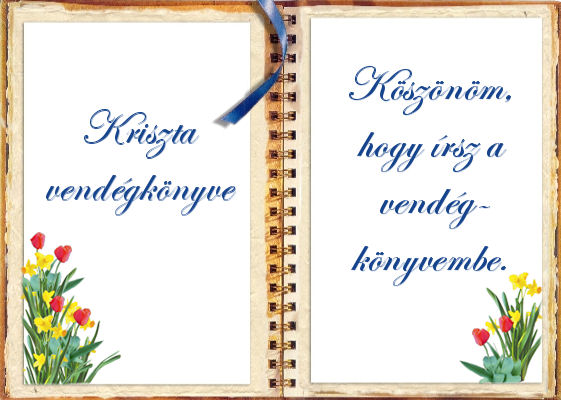 Kriszta
vendégkönyve
Köszönöm,
hogy írsz a
vendég-
könyvembe.